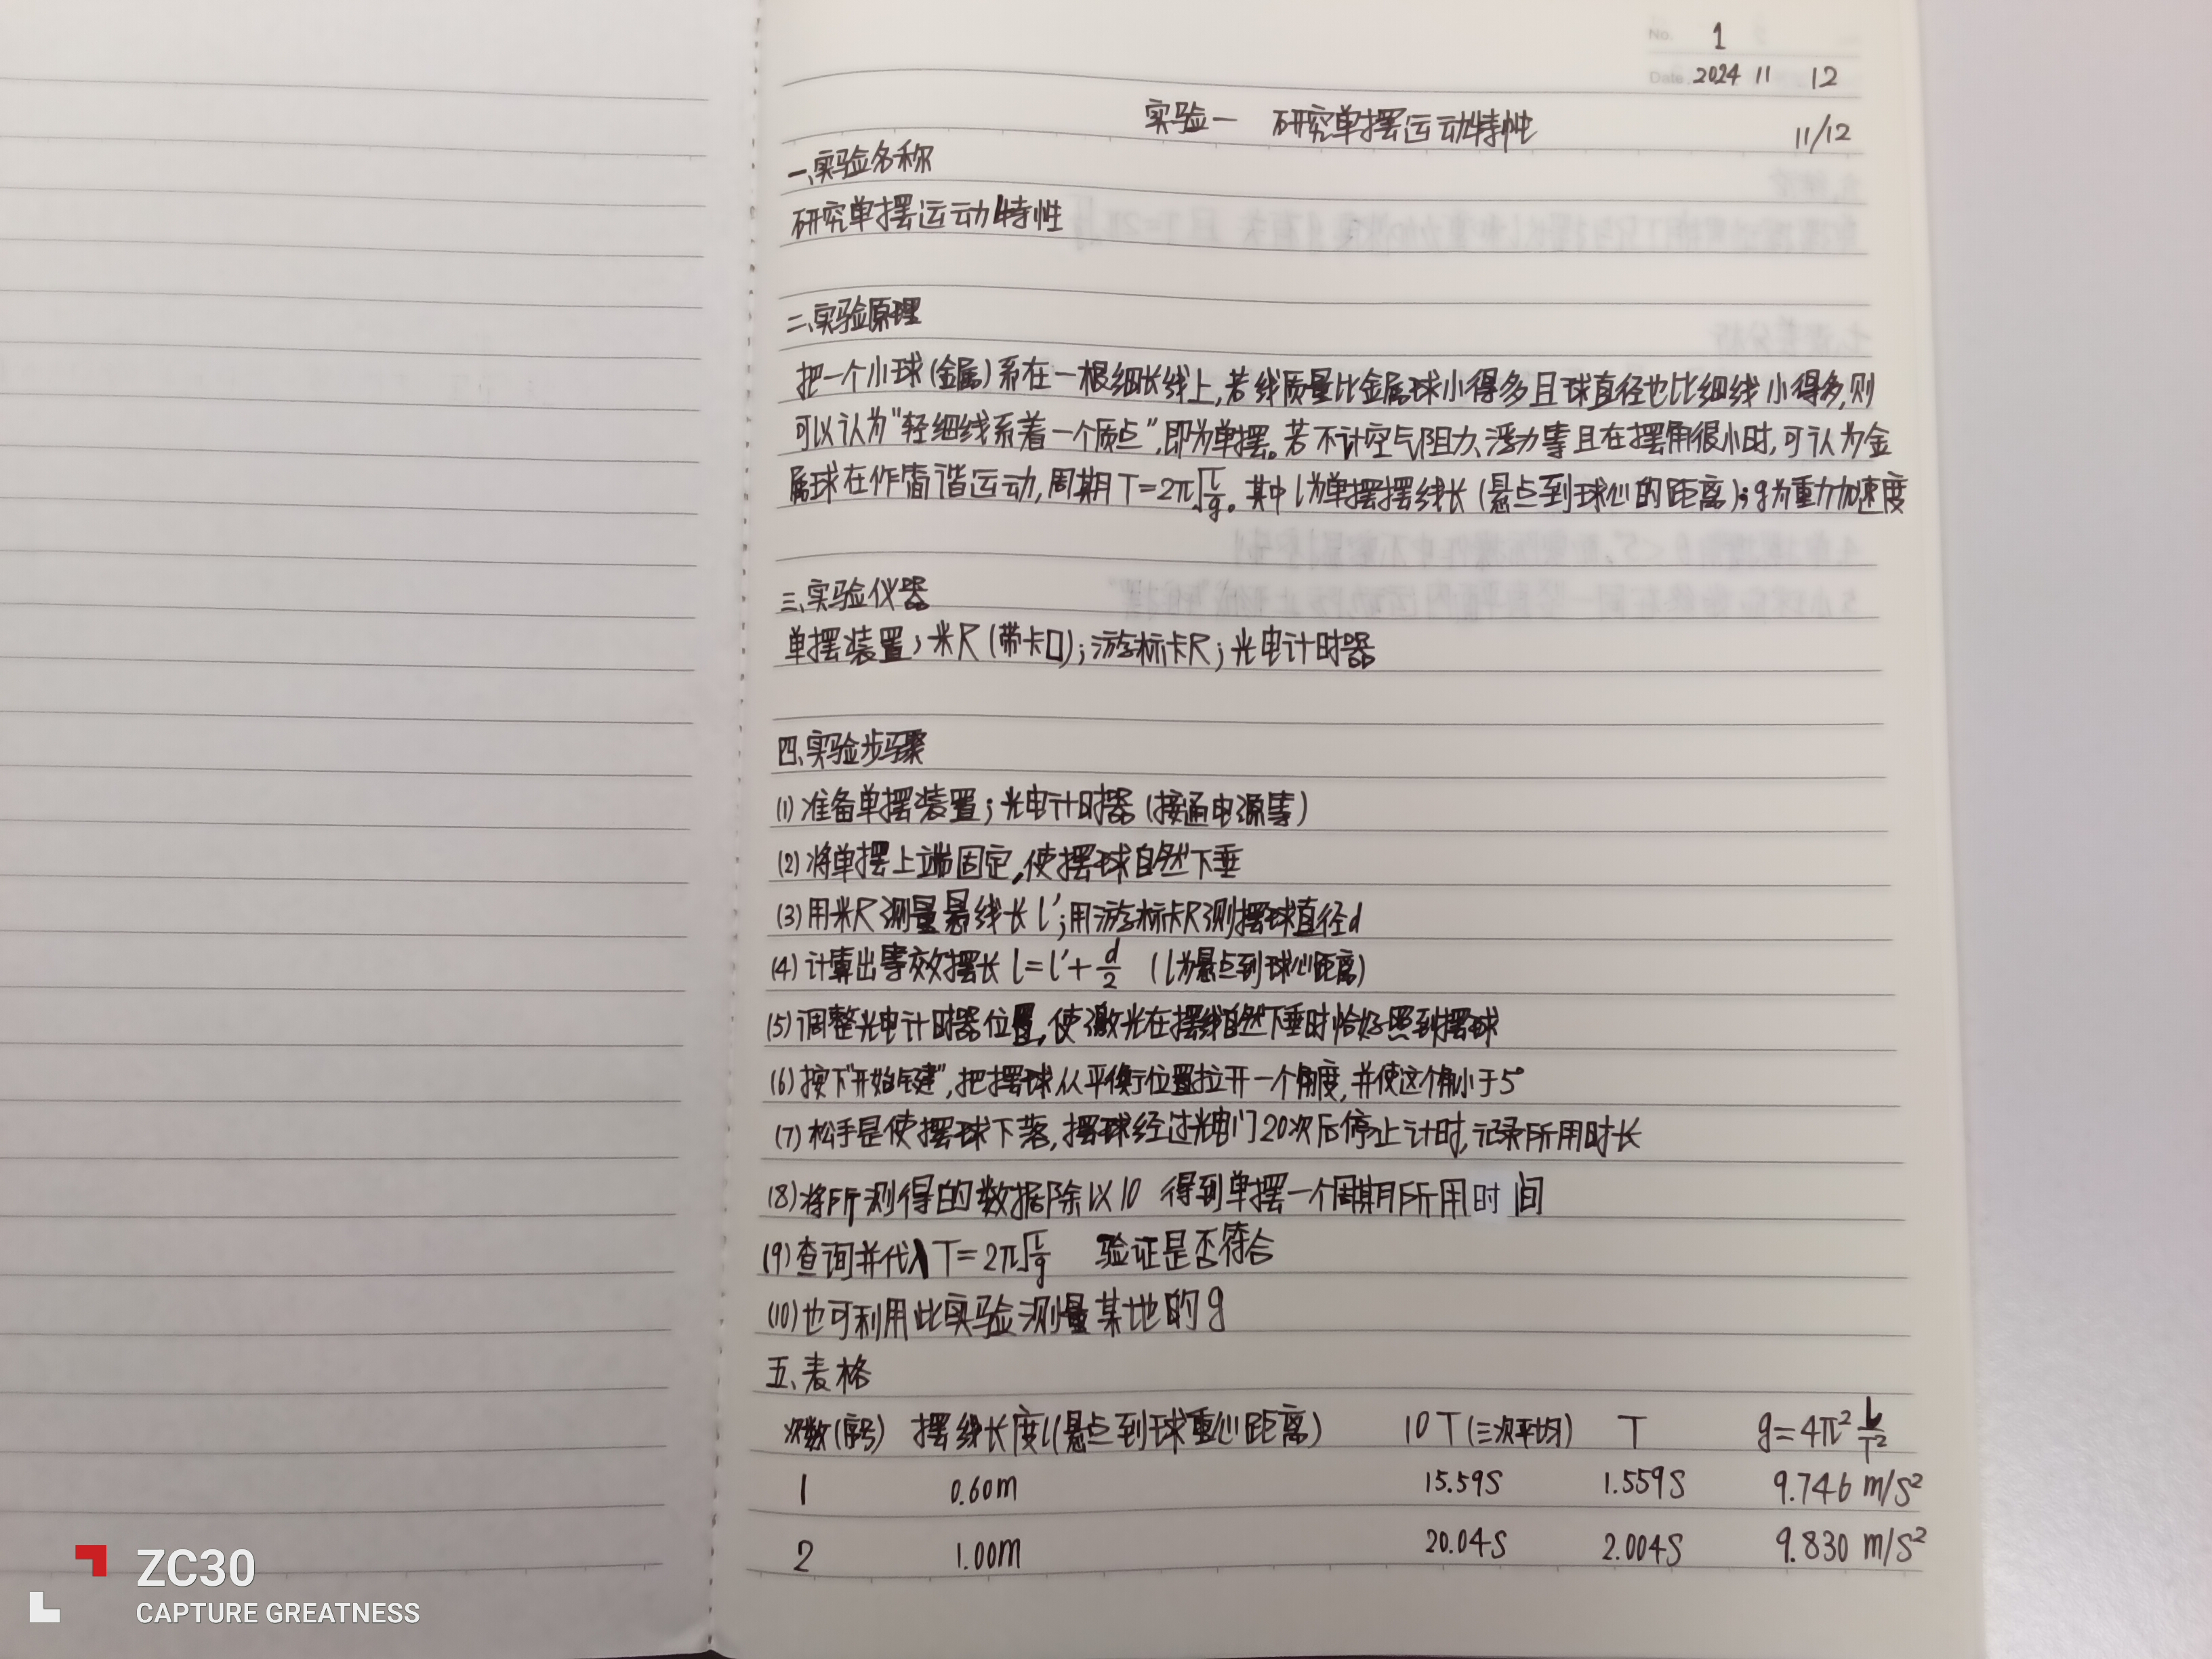 No. 1
Date 2024 11 12
实验一 研究单摆运动特性 11/12
一、实验名称
研究单摆运动特性
二、实验原理
把一个小球(金属)系在一根细长线上,若线质量比金属球小得多且球直径也比细线小得多,则
可以认为"轻细线系着一个质点",即为单摆。若不计空气阻力、浮力等且在摆角很小时,可认为金
属球在作简谐运动,周期T=2π√(l/g)。其中l为单摆摆线长(悬点到球心的距离);g为重力加速度
三、实验仪器
单摆装置;米尺(带卡口);游标卡尺;光电计时器
四、实验步骤
(1)准备单摆装置;光电计时器(接通电源等)
(2)将单摆上端固定,使摆球自然下垂
(3)用米尺测量悬线长l′;用游标卡尺测摆球直径d
(4)计算出等效摆长l=l′+d/2 (l为悬点到球心距离)
(5)调整光电计时器位置,使激光在摆线自然下垂时恰好照到摆球
(6)按下"开始键",把摆球从平衡位置拉开一个角度,并使这个角小于5°
(7)松手是使摆球下落,摆球经过光电门20次后停止计时,记录所用时长
(8)将所测得的数据除以10 得到单摆一个周期所用时间
(9)查询并代入T=2π√(l/g) 验证是否符合
(10)也可利用此实验测量某地的g
五、表格
次数(序号) 摆线长度l(悬点到球重心距离) 10T(三次平均) T g=4π²L/T²
1 0.60m 15.59s 1.559s 9.746 m/s²
2 1.00m 20.04s 2.004s 9.830 m/s²
ZC30
CAPTURE GREATNESS